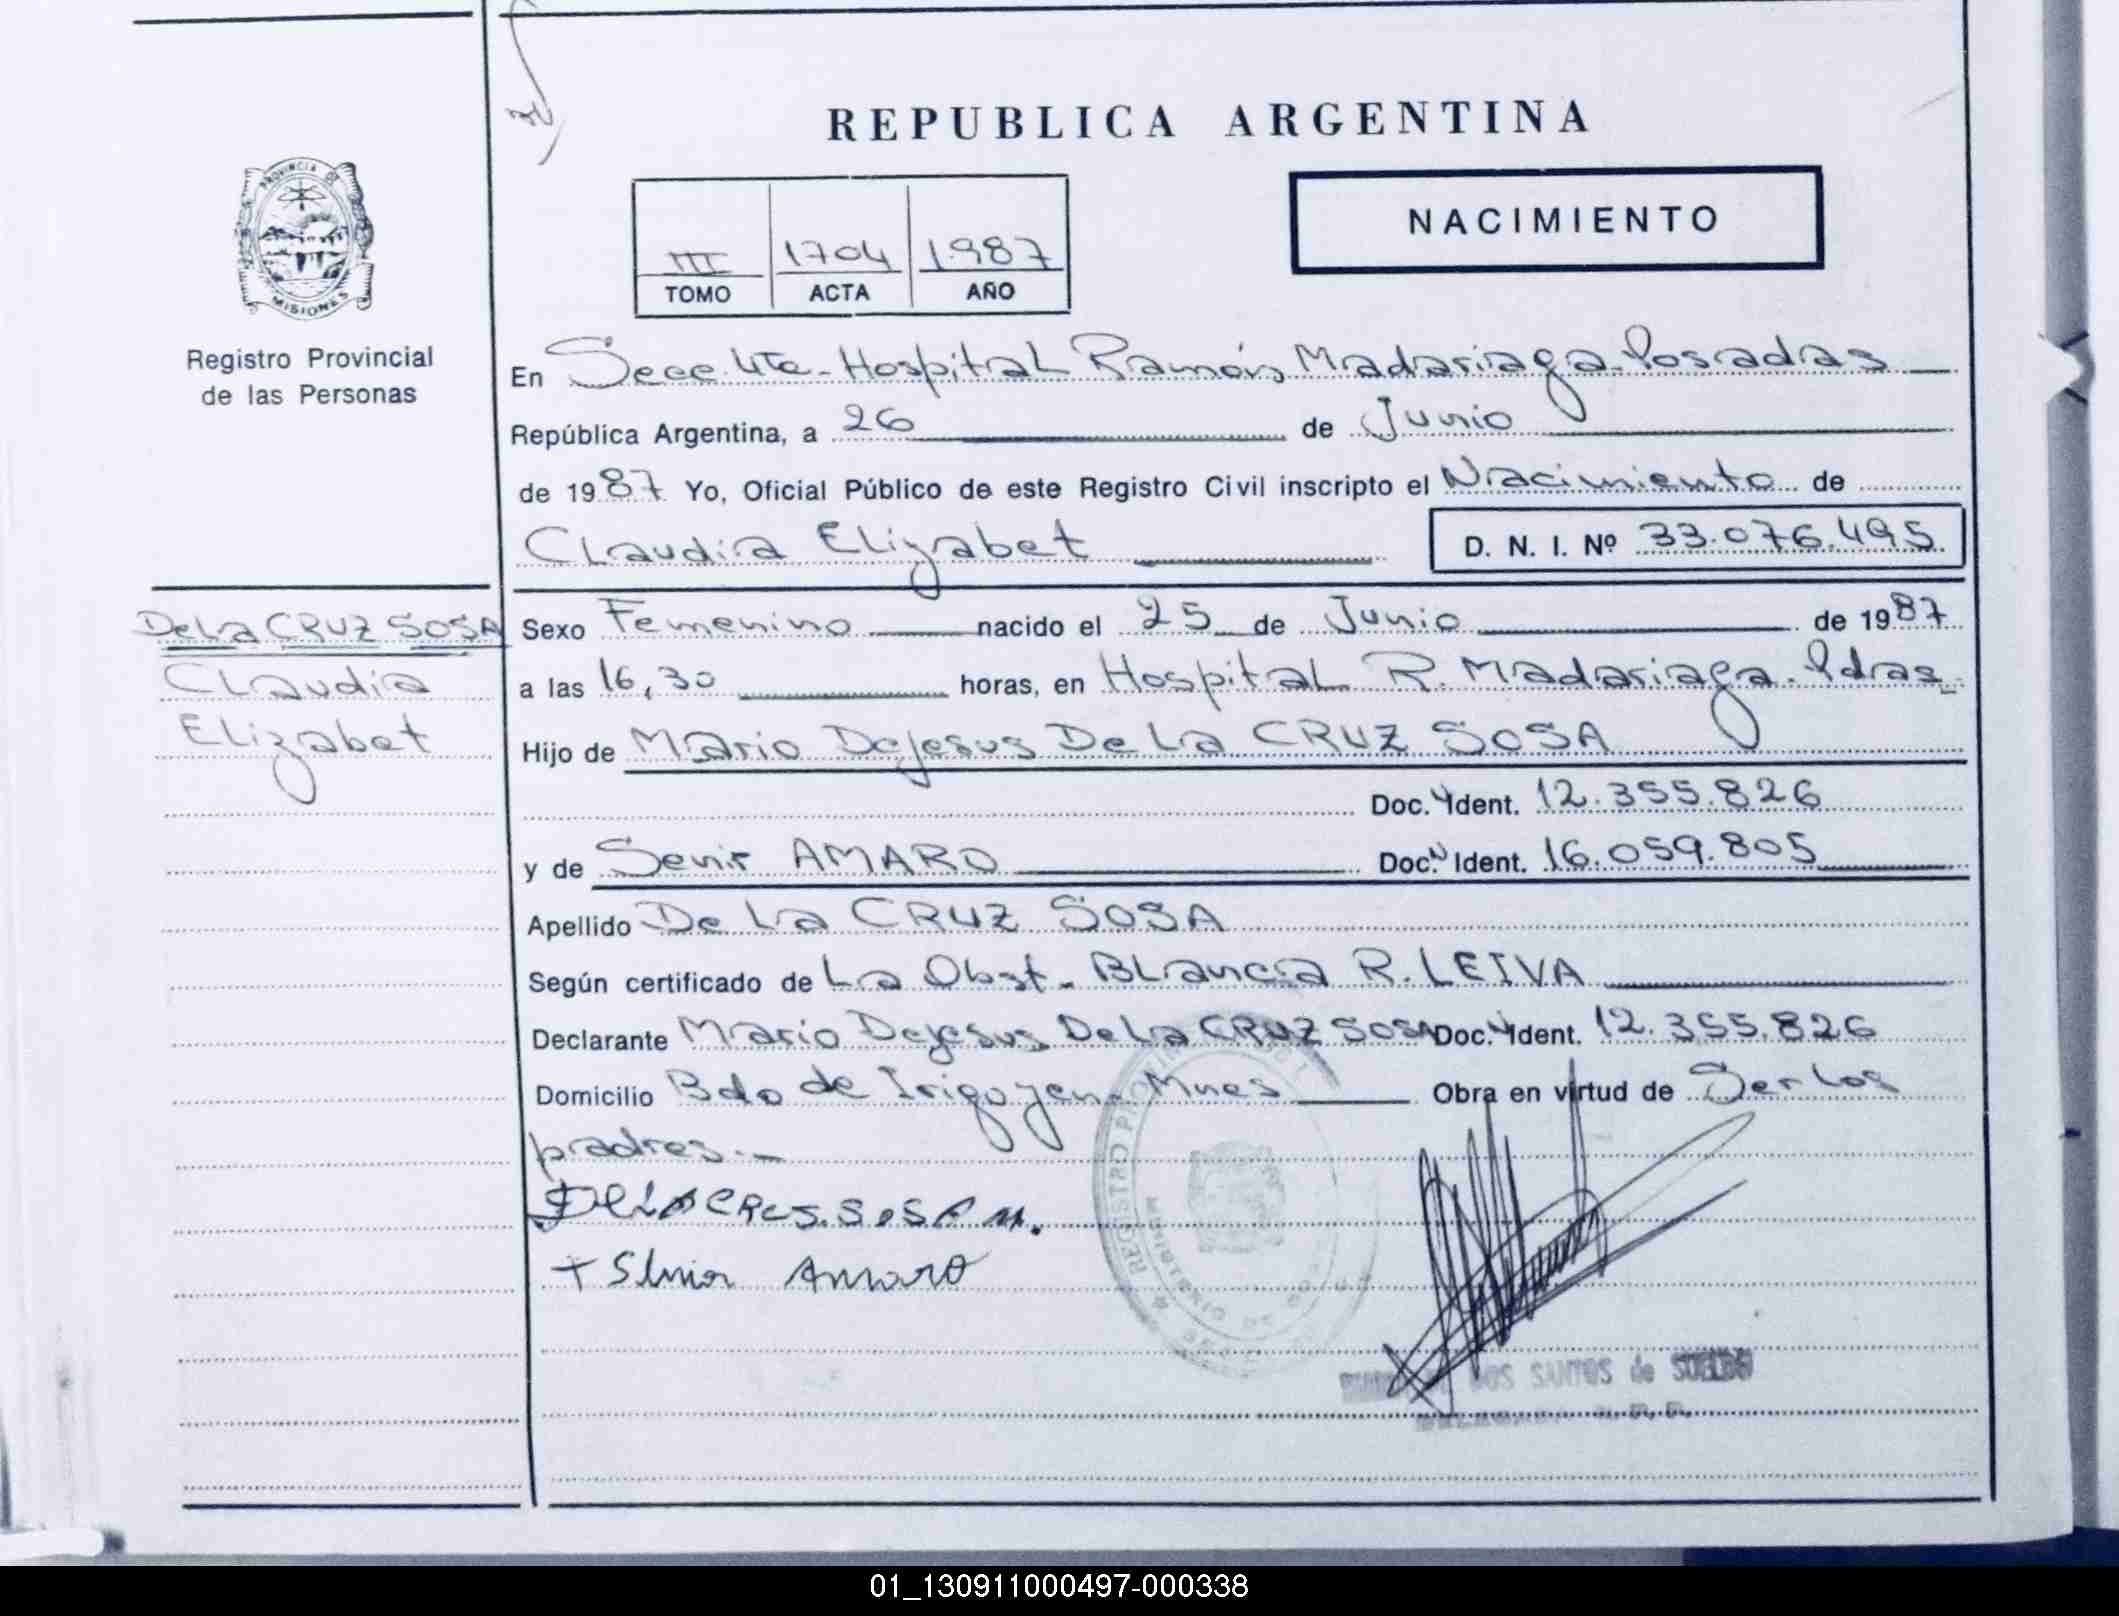 REPUBLICA ARGENTINA
PROVINCIA DE
MISIONES
Registro Provincial
de las Personas
III 1704 1987
TOMO ACTA AÑO
NACIMIENTO
En Secc. 4ta - Hospital Ramón Madariaga - Posadas
República Argentina, a 26 de Junio
de 1987 Yo, Oficial Público de este Registro Civil inscripto el Nacimiento de
Claudia Elizabet D. N. I. Nº 33.076.495
De La CRUZ SOSA
Claudia
Elizabet
Sexo Femenino nacido el 25 de Junio de 1987
a las 16,30 horas, en Hospital R. Madariaga - Pdas -
Hijo de Mario Dejesus De La CRUZ SOSA
Doc. Ident. 12.355.826
y de AMARO Doc. Ident. 16.059.805
Apellido De La CRUZ SOSA
Según certificado de La Obst. Blanca R. LEIVA
Declarante Mario Dejesus De La CRUZ SOSA Doc. Ident. 12.355.826
Domicilio Bdo de Irigoyen - Mnes Obra en virtud de Ser los
padres.-
De LA CRUS. SOSA M.
+ Amaro
REGISTRO PROVINCIAL
MINISTERIO DE GO
DOS SANTOS de SUELDO
01_130911000497-000338